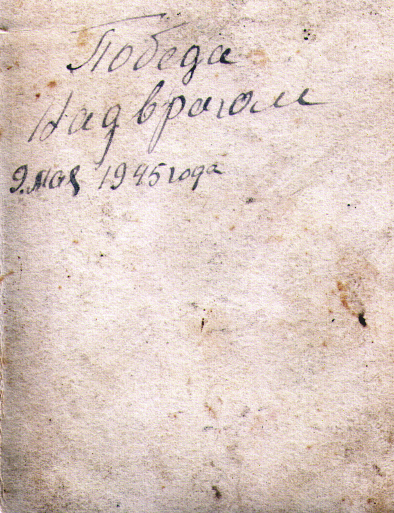 Победа
Над врагом
9. мая 1945 года